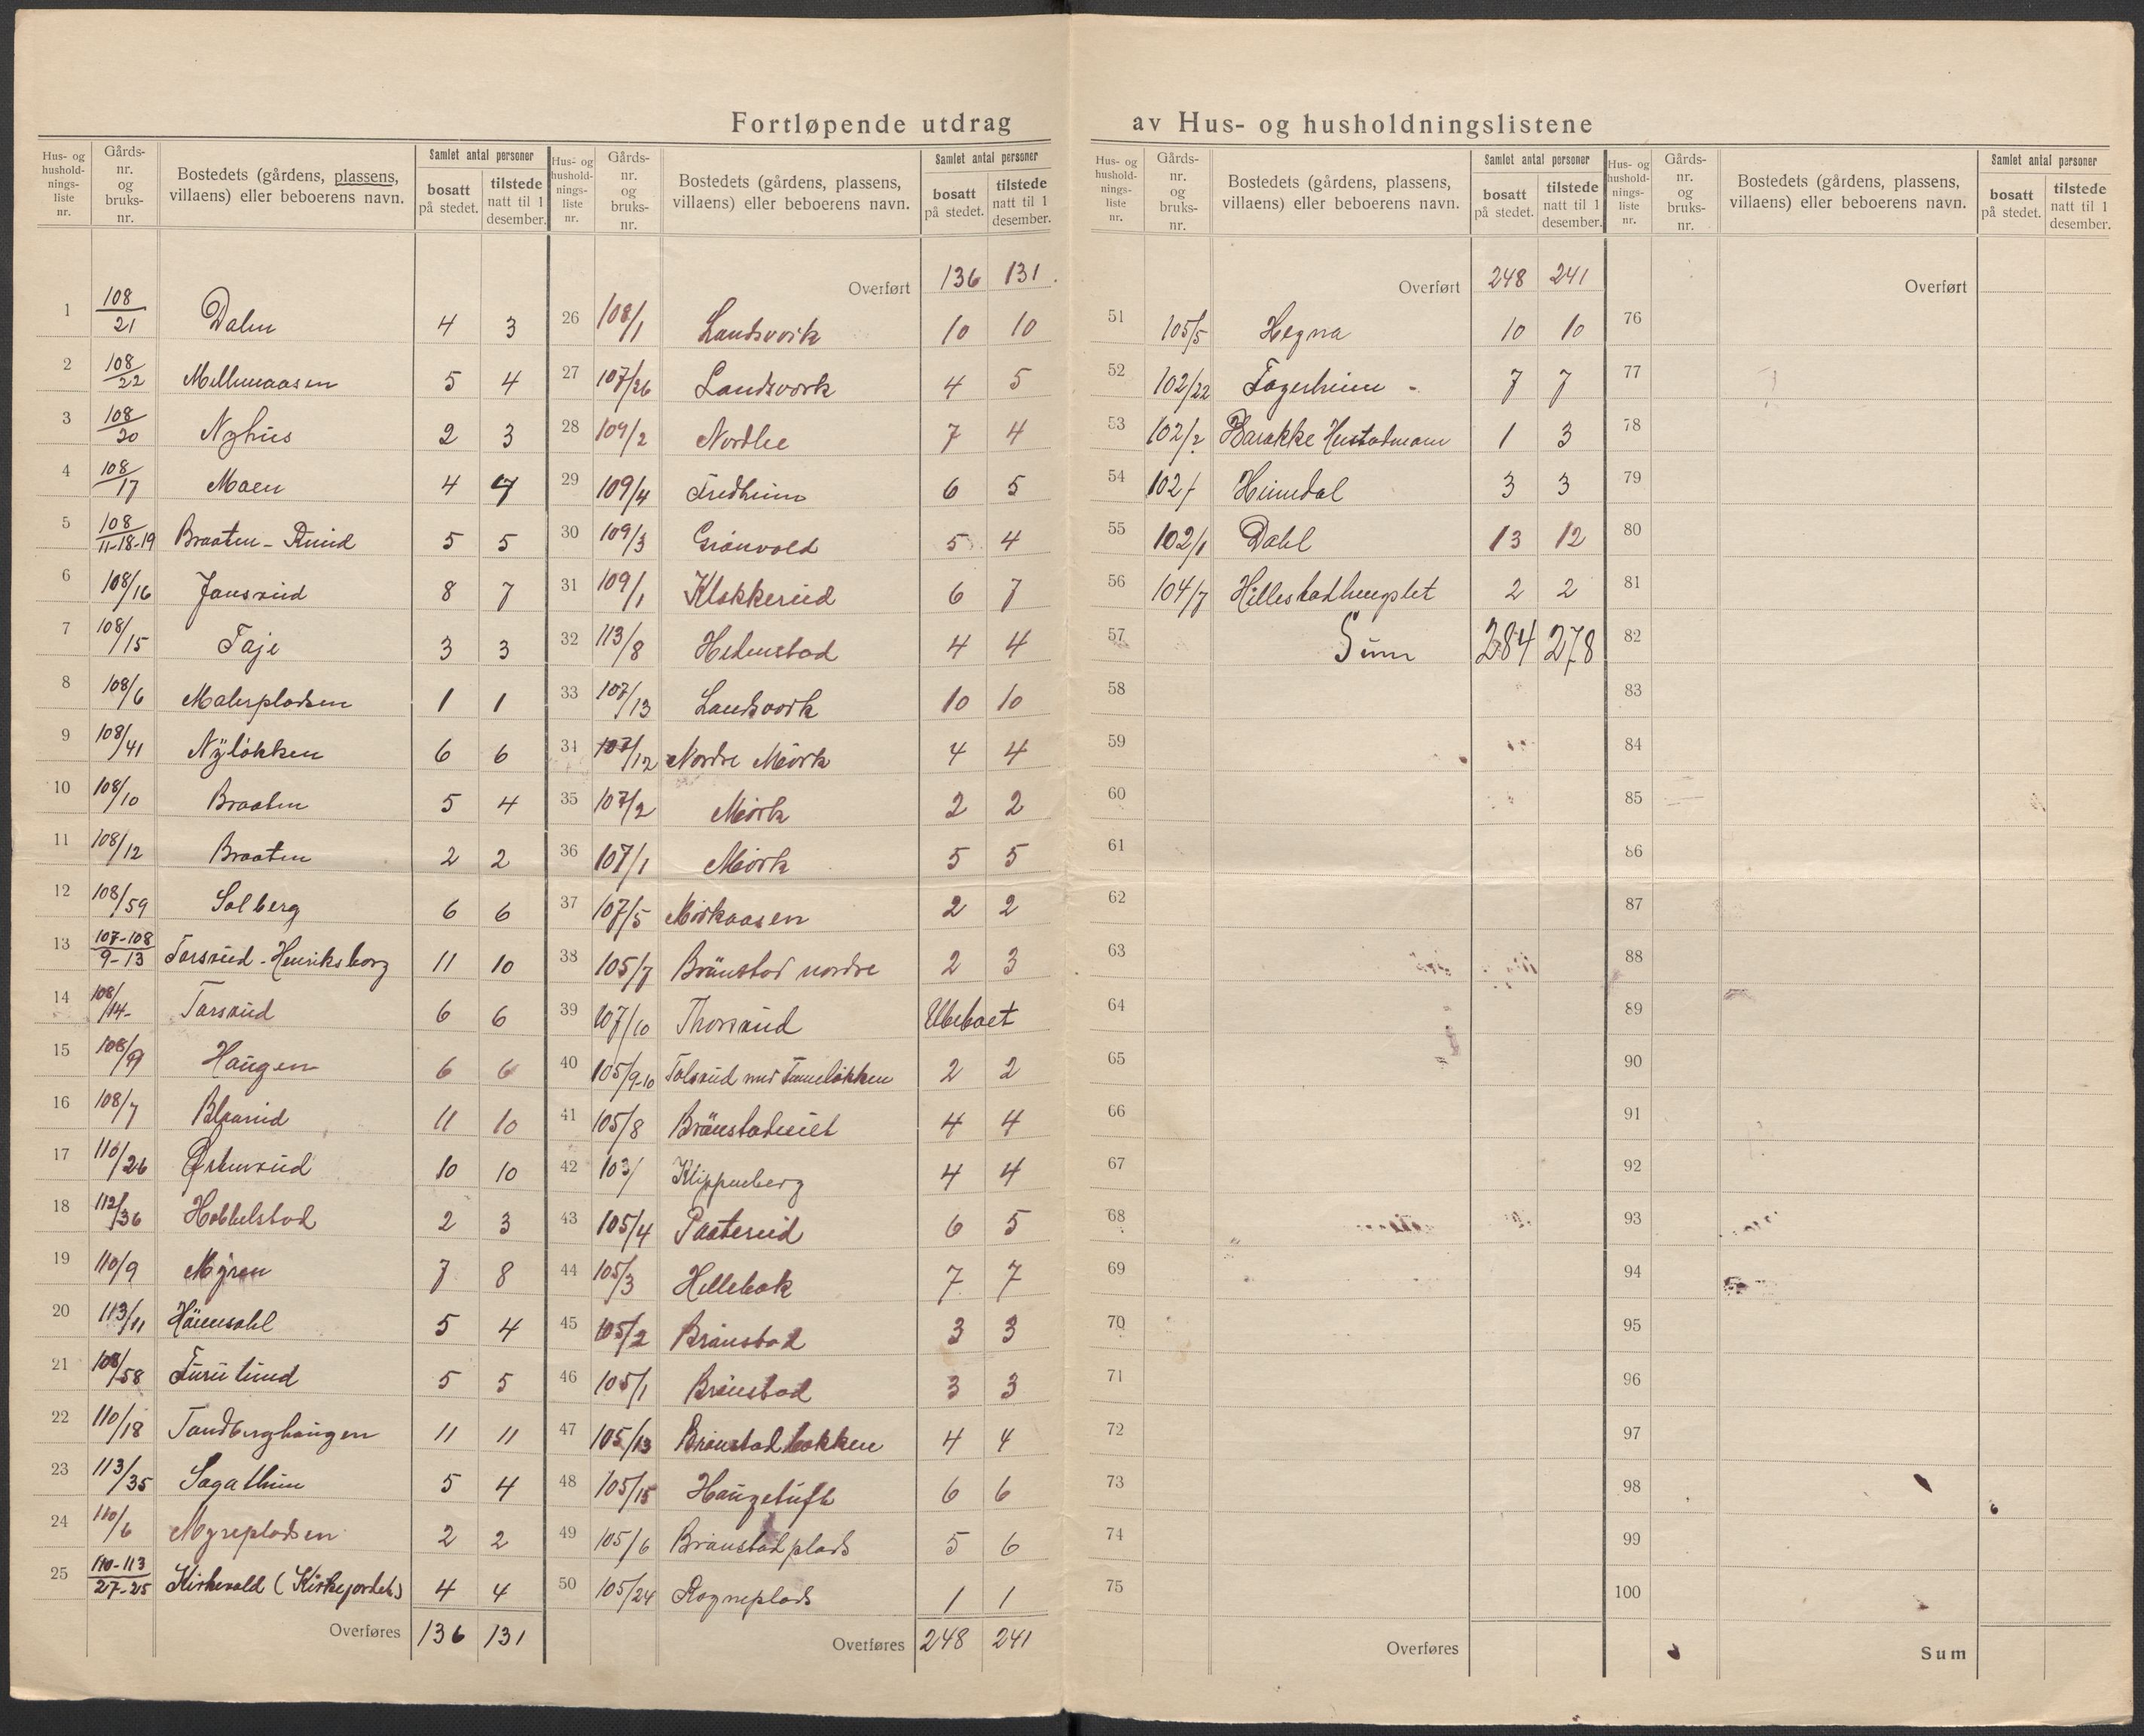 Fortløpende utdrag av Hus- og husholdningslistene
Hus- og hushold-nings-liste nr. | Gårds-nr. og bruks-nr. | Bostedets (gårdens, plassens, villaens) eller beboerens navn. | Samlet antal personer | bosatt på stedet. | tilstede natt til 1 desember.
1 108/21 Dalen 4 3
2 108/22 Mellumaasen 5 4
3 108/20 Nyhus 2 3
4 108/17 Moen 4 4
5 108/11-18-19 Braaten - Ruud 5 5
6 108/16 Jansrud 8 7
7 108/15 Faje 3 3
8 108/6 Malerpladsen 1 1
9 108/41 Nyløkken 6 6
10 108/10 Braaten 5 4
11 108/12 Braaten 2 2
12 108/59 Solberg 6 6
13 107-108/9-13 Torsrud - Henriksborg 11 10
14 108/14 Torsrud 6 6
15 108/9 Haugen 6 6
16 108/7 Blaarud 11 10
17 110/26 Østensrud 10 10
18 112/36 Hobbelstad 2 3
19 110/9 Myren 7 8
20 113/11 5 4
21 108/58 Furulund 5 5
22 110/18 Tandberghaugen 11 11
23 113/35 Sagathun 5 4
24 110/6 Myrepladsen 2 2
25 110-113/27-25 Kirkevold (Kirkejordet) 4 4
Overføres 136 131
Hus- og hushold-nings-liste nr. | Gårds-nr. og bruks-nr. | Bostedets (gårdens, plassens, villaens) eller beboerens navn. | Samlet antal personer | bosatt på stedet. | tilstede natt til 1 desember.
Overført 136 131
26 108/1 Landsverk 10 10
27 107/26 Landsverk 4 5
28 109/2 Nordlie 7 4
29 109/4 Fredheim 6 5
30 109/3 Grønvold 5 4
31 109/1 Klokkerud 6 7
32 113/8 Hedenstad 4 4
33 107/13 Landsverk 10 10
34 107/12 Nordre Mørk 4 4
35 107/2 Mørk 2 2
36 107/1 Mørk 5 5
37 107/5 Mørkaasen 2 2
38 105/7 Brånstad nordre 2 3
39 107/10 Thorsrud Ubeboet
40 105/9-10 Tolsrud med Tunneløkken 2 2
41 105/8 4 4
42 103/ Klippenberg 4 4
43 105/4 Paaterud 6 5
44 105/3 Hellebæk 7 7
45 105/2 Brånstad 3 3
46 105/1 Brånstad 3 3
47 105/13 Brånstadbakken 4 4
48 105/15 Haugetuft 6 6
49 105/6 Brånstadplads 5 6
50 105/24 Rogneplads 1 1
Overføres 248 241
Hus- og hushold-nings-liste nr. | Gårds-nr. og bruks-nr. | Bostedets (gårdens, plassens, villaens) eller beboerens navn. | Samlet antal personer | bosatt på stedet. | tilstede natt til 1 desember.
Overført 248 241
51 105/5 Hegna 10 10
52 102/22 Fagerheim - 7 7
53 102/2 Barakke 1 3
54 102/ Heimdal 3 3
55 102/1 Dahl 13 12
56 104/7 2 2
57 Sum 284 278
58
59
60
61
62
63
64
65
66
67
68
69
70
71
72
73
74
75
Overføres
Hus- og hushold-nings-liste nr. | Gårds-nr. og bruks-nr. | Bostedets (gårdens, plassens, villaens) eller beboerens navn. | Samlet antal personer | bosatt på stedet. | tilstede natt til 1 desember.
Overført
76
77
78
79
80
81
82
83
84
85
86
87
88
89
90
91
92
93
94
95
96
97
98
99
100
Sum